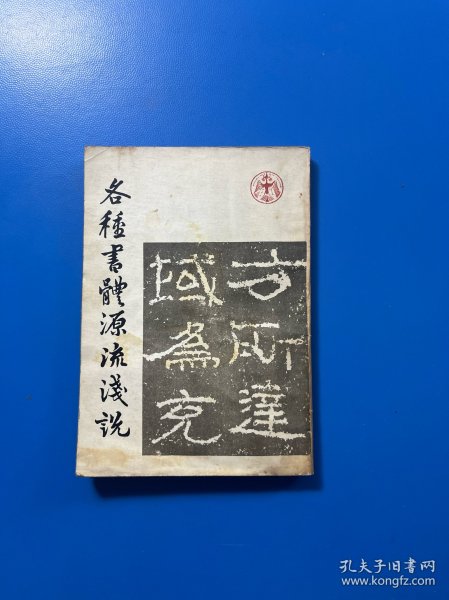 各種書體源流淺説
方所達
域為充
孔夫子旧书网
www.kongfz.com